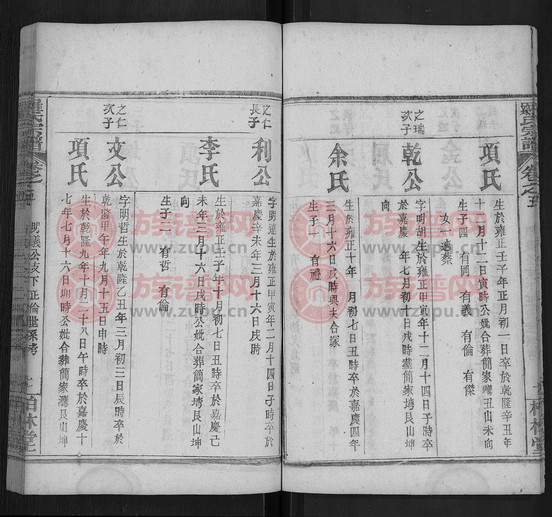 項氏
生於雍正壬子年正月初一日辰時卒於乾隆辛丑年
十一月十二日寅時公妣合葬簡家灣丑山未向
生子四 有興 有義 有倫 有傑
女一適蔡
之瑞次子
乾公
字明胡生於雍正甲寅年十二月十四日子時卒
於嘉慶 年七月初十日戌時公妣合葬簡家灣艮山坤
向
余氏
生於雍正十年 月初七日丑時卒於嘉慶四年
三月十六日戌時與夫合塚
生子一 有禮
之仁長子
利公
字明運生於雍正甲寅年二月十四日子時卒於
嘉慶辛未年三月十六日戌時
李氏
生於雍正壬子年十月初七日丑時卒於嘉慶己
未年三月十六日戌時公妣合葬簡家灣艮山坤
向
生子二 有哲 有倫
之仁次子
文公
字明哲生於乾隆乙丑年三月初三日辰時卒於
乾隆甲午年九月十五日申時
項氏
生於乾隆九年十月二十八日午時卒於嘉慶十
七年七月十六日卯時公妣合葬簡家灣艮山坤
羅氏宗譜
卷之五
明義公支下正倫
柏林堂
族谱网
www.zupu.cn